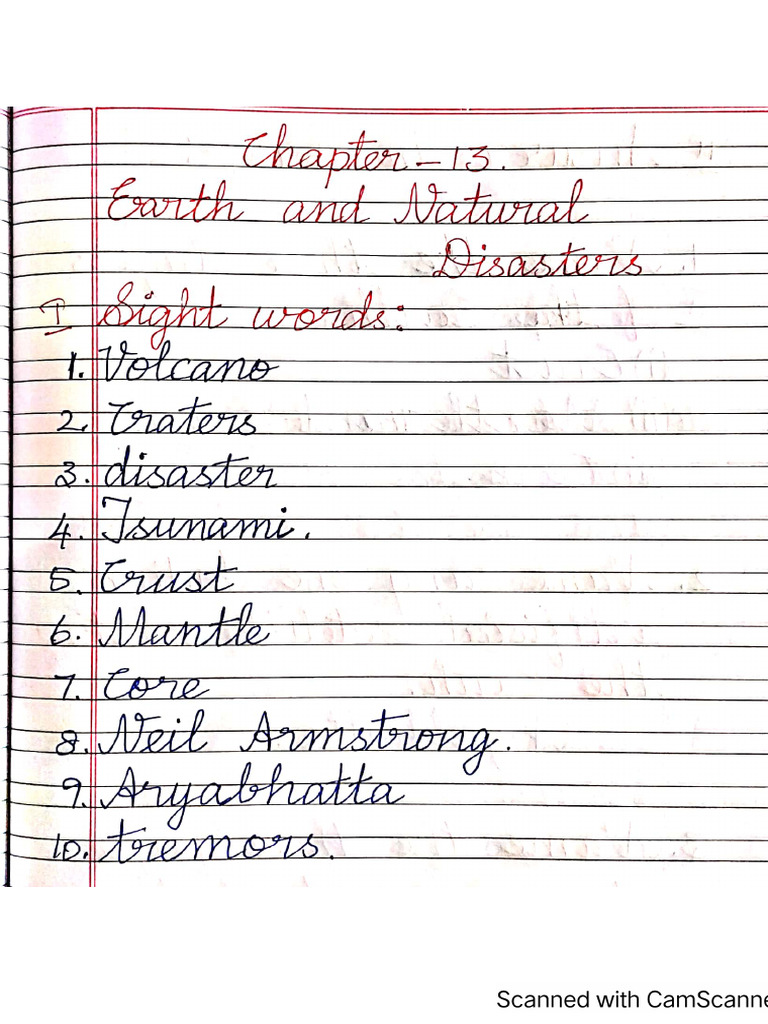 Chapter - 13.
Earth and Natural
Disasters
I Sight words:
1. Volcano
2. Craters
3. disaster
4. Tsunami.
5. Crust
6. Mantle
7. Core
8. Neil Armstrong.
9. Aryabhatta
10. tremors.
Scanned with CamScanne